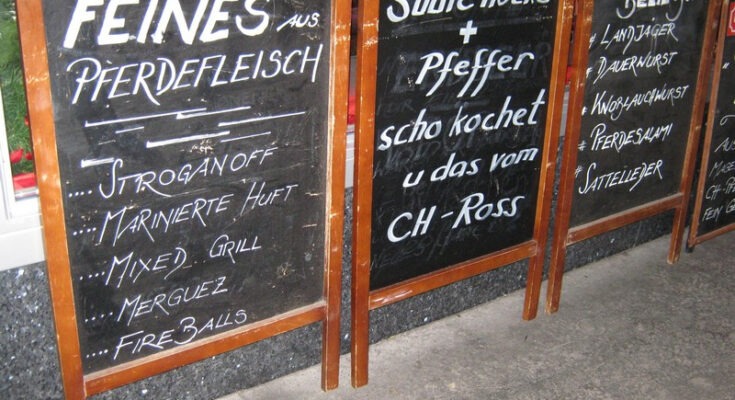 FEINES AUS
PFERDEFLEISCH
.... STROGANOFF
.... MARINIERTE HUFT
.... MIXED GRILL
.... MERGUEZ
.... FIREBALLS
+
Pfeffer
scho kochet
u das vom
CH-Ross
LANDJÄGER
DAUERWURST
KNOBLAUCHWURST
PFERDESALAMI
SATTELLEDER
AUS
CH-
FEIN